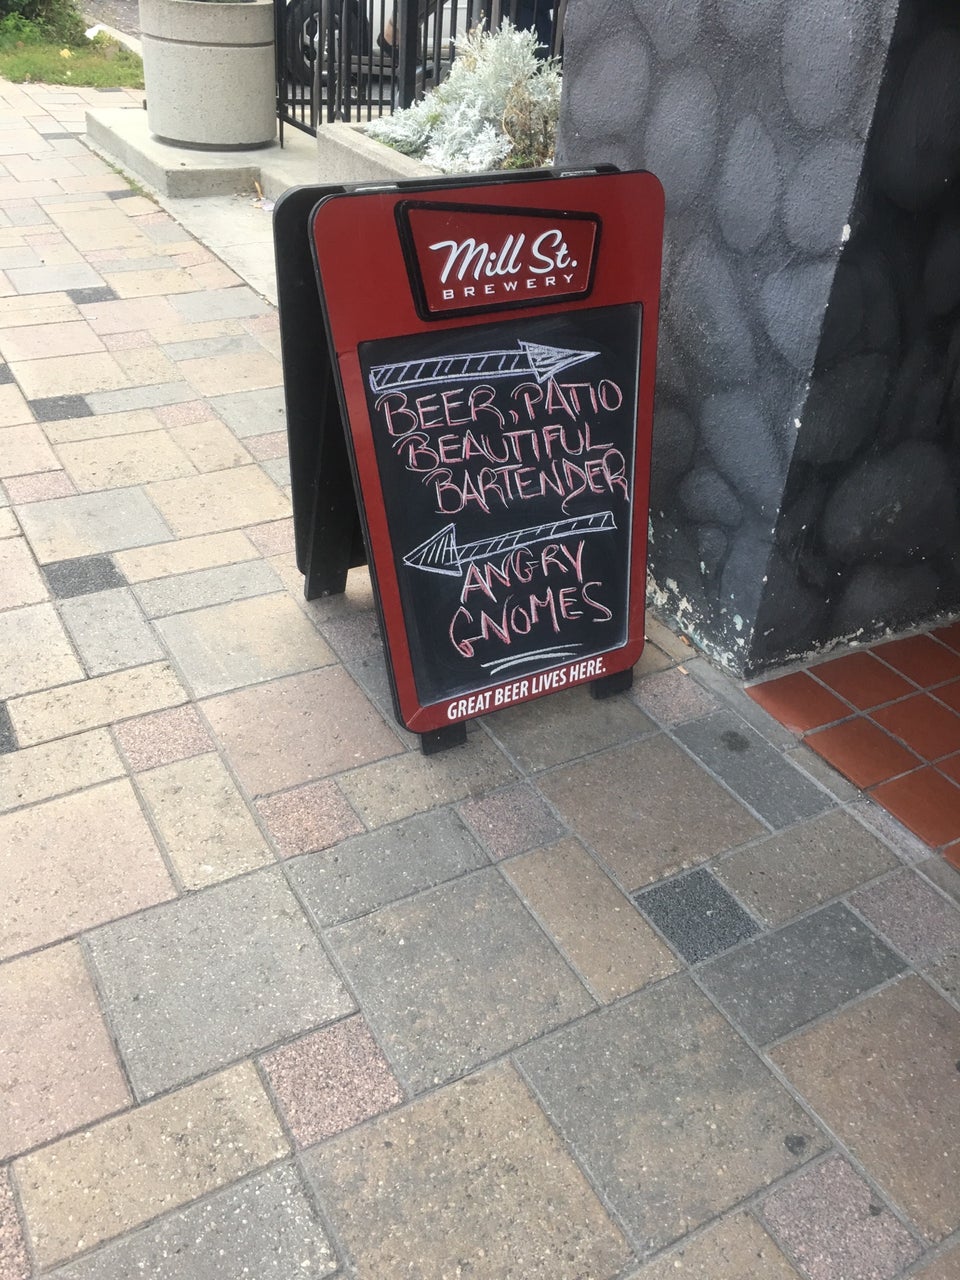 Mill St.
BREWERY
BEER, PATIO
BEAUTIFUL
BARTENDER
ANGRY
GNOMES
GREAT BEER LIVES HERE.